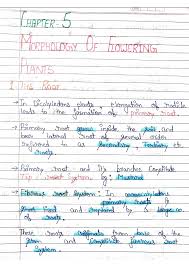 CHAPTER-5
MORPHOLOGY OF FLOWERING
PLANTS
THE ROOT
→ In Dicotyledons plants, elongation of radicle
leads to the formation of primary root.
→ Primary root grows inside the soil and
bear lateral root of several order
referred to as Secondary, Tertiary etc
roots.
→ Primary root and its branches constitute
Tap root System.
→ Fibrous root System: In monocotyledons
primary root is
short lived and replaced by
of roots.
These roots originate from base of the
stem and constitute fibrous root
System.